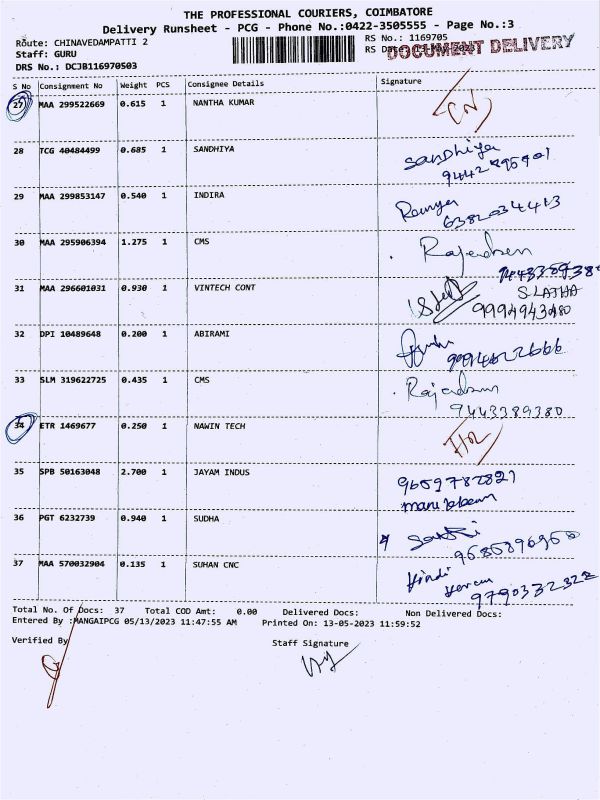 THE PROFESSIONAL COURIERS, COIMBATORE
Delivery Runsheet - PCG - Phone No.:0422-3505555 - Page No.:3
Route: CHINAVEDAMPATTI 2
RS No.: 1169705
Staff: GURU
RS Date: 13-May-2023
DOCUMENT DELIVERY
DRS No.: DCJB116970503
S No Consignment No Weight PCS Consignee Details Signature
27 MAA 299522669 0.615 1 NANTHA KUMAR
28 TCG 40484499 0.685 1 SANDHIYA Sandhiya
29 MAA 299853147 0.540 1 INDIRA Ramya
6382034413
30 MAA 295906394 1.275 1 CMS
9443389380
31 MAA 296601031 0.930 1 VINTECH CONT S.LATHA
9994943480
32 DPI 10489648 0.200 1 ABIRAMI
33 SLM 319622725 0.435 1 CMS
9443389380
34 ETR 1469677 0.250 1 NAWIN TECH
35 SPB 50163048 2.700 1 JAYAM INDUS
36 PGT 6232739 0.940 1 SUDHA
37 MAA 570032904 0.135 1 SUHAN CNC
9790332322
Total No. Of Docs: 37 Total COD Amt: 0.00 Delivered Docs: Non Delivered Docs:
Entered By :MANGAIPCG 05/13/2023 11:47:55 AM Printed On: 13-05-2023 11:59:52
Verified By
Staff Signature